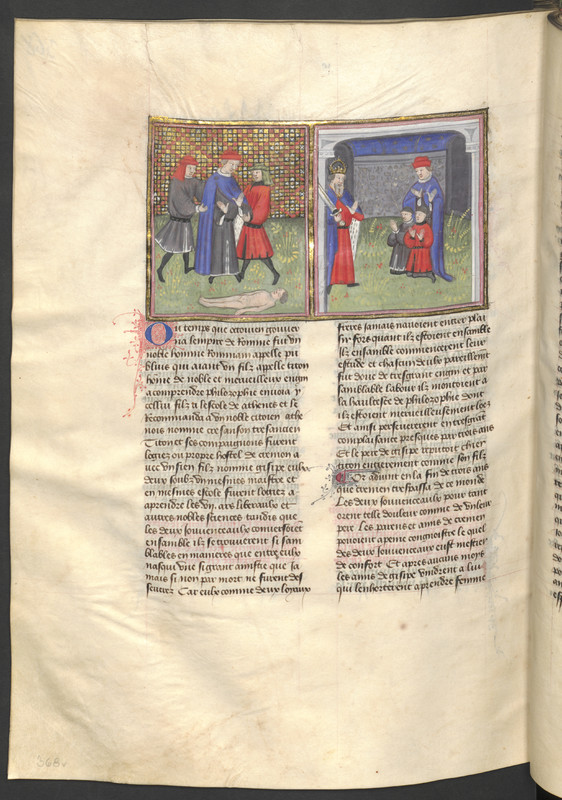 Ou temps que octouien gouuer
na lempire de Romme fut vn
noble homme Rommain apelle pu
blius qui auant vn filz apelle titon
home de noble et merueilleux engin
a comprendre philozophie enuoia y
cellui filz a lescole de athenes et le
Recommanda a vn noble citoien athe
nois nomme cremson tresancien
Titon et ses compaignons furent
logiez ou propre hostel de cremon a
uec vn sien filz nomme gisipe eulx
deux soubz vn mesme maistre et
en mesmes escole furent logiez a
aprendre les vii ars liberaulx et
autres nobles sciences tandis que
les deux Jouuenceaulx conuersoiet
ensamble ilz se trouuerent si sam
blables en manieres que entre eulx
nasqui vne si grant amistie que ja
mais si non par mort ne furent des
seurez Car eulx comme deux loyaux
freres jamais nauoient entier plai
sir fors quant ilz estoient ensamble
Ilz ensamble commencerent leur
estude et chascun deulx pareillemt
fut doue de tresgrant engin et par
samblable labour ilz monterent a
la haultesse de philozophie dont
ilz estoient merueilleusement loez
Et ainsi perseuererent en tresgrat
complaisance presques par trois ans
Et le pere de gisipe reputoit chier
titon entierement comme son filz
Or aduint en la fin de trois ans
que cremen trespassa de ce monde
Les deux Jouuenceaulx pour tant
orent telle douleur comme de vn leur
pere Les parens et amis de cremen
pouoient a peine congnoistre le quel
des deux Jouuenceaux eust mestier
de confort Et apres aucuns moys
les amis de gisipe vindrent a lui
qui lenhorterent a prendre femme
368v